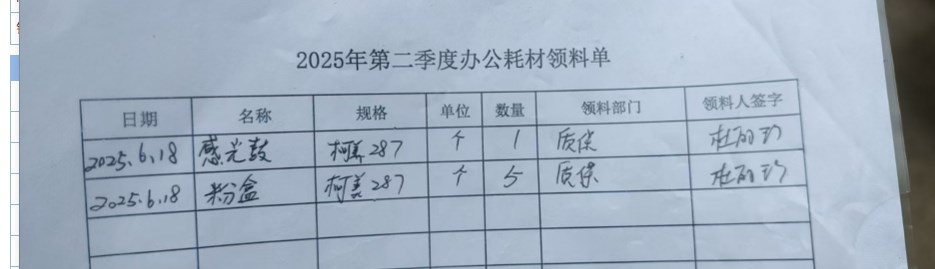 2025年第二季度办公耗材领料单
日期 名称 规格 单位 数量 领料部门 领料人签字
2025.6.18 感光鼓 柯美287 个 1 质保
2025.6.18 粉盒 柯美287 个 5 质保